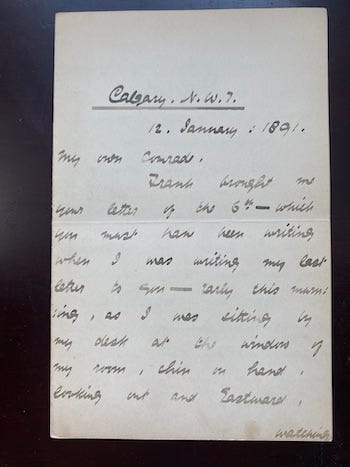 Calgary. N.W.T.
12. January : 1891.
My own Comrade.
Frank brought me
your letter of the 6th — which
you must have been writing
when I was writing my last
letter to you — early this morn-
:ing, as I was sitting by
my desk at the window of
my room, chin on hand,
looking out and Eastward,
watching